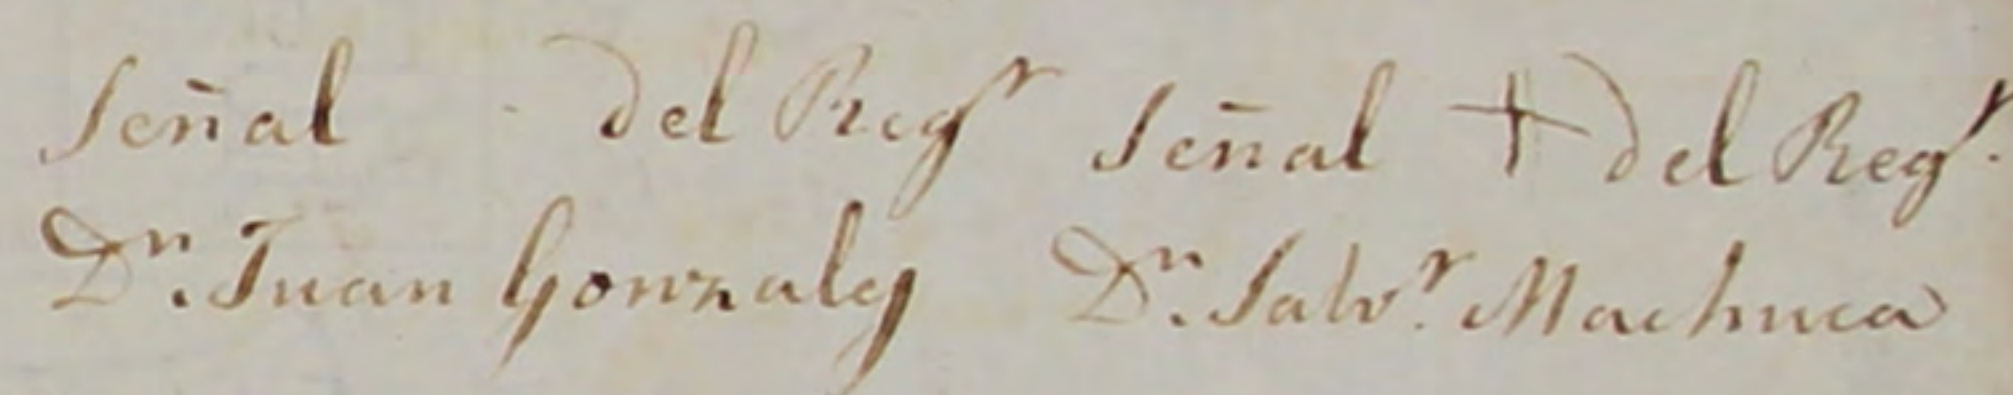 Señal del Reg.r Señal + del Reg.r
Dn. Juan Gonzalez Dn. Salv.r Machuca